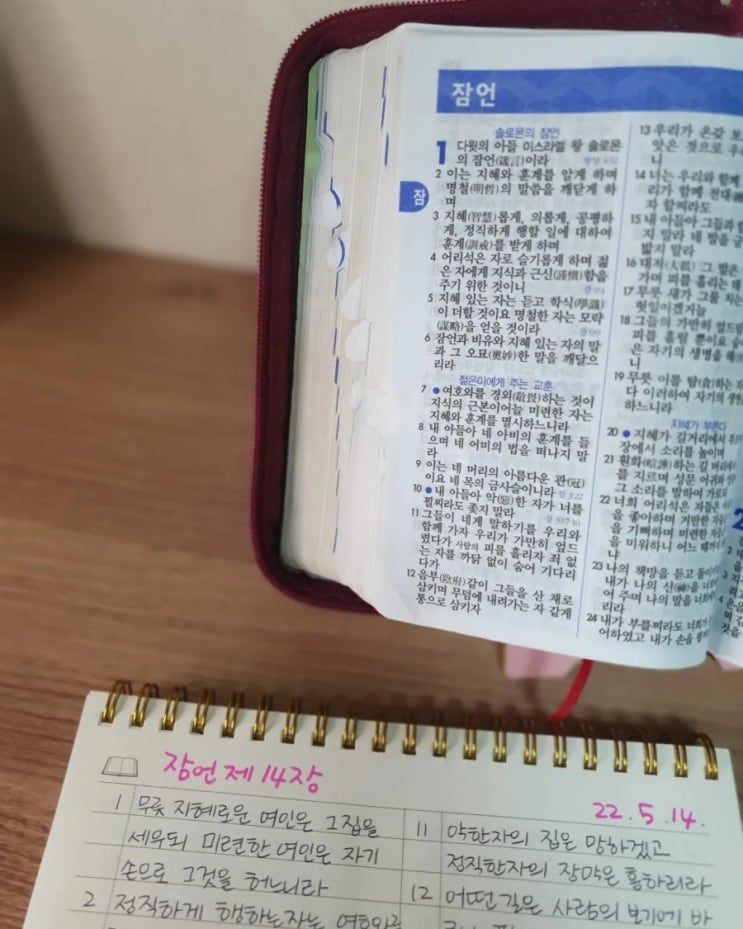 잠언
잠
솔로몬의 잠언
1 다윗의 아들 이스라엘 왕 솔로몬
의 잠언(箴言)이라
2 이는 지혜와 훈계를 알게 하며
명철(明哲)의 말씀을 깨닫게 하
며
3 지혜(智慧)롭게, 의롭게, 공평하
게, 정직하게 행할 일에 대하여
훈계(訓戒)를 받게 하며
4 어리석은 자로 슬기롭게 하며 젊
은 자에게 지식과 근신(謹愼)함을
주기 위한 것이니
5 지혜 있는 자는 듣고 학식(學識)
이 더할 것이요 명철한 자는 모략
(謀略)을 얻을 것이라
6 잠언과 비유와 지혜 있는 자의 말
과 그 오묘(奧妙)한 말을 깨달으
리라
젊은이에게 주는 교훈
7 ●여호와를 경외(敬畏)하는 것이
지식의 근본이어늘 미련한 자는
지혜와 훈계를 멸시하느니라
8 내 아들아 네 아비의 훈계를 들
으며 네 어미의 법을 떠나지 말
라
9 이는 네 머리의 아름다운 관(冠)
이요 네 목의 금사슬이니라 잠3:22
10 ●내 아들아 악(惡)한 자가 너를
꾈찌라도 좇지 말라
11 그들이 네게 말하기를 우리와
함께 가자 우리가 가만히 엎드
렸다가 사람의 피를 흘리자 죄 없
는 자를 까닭 없이 숨어 기다리
다가
12 음부(陰府)같이 그들을 산 채로
삼키며 무덤에 내려가는 자 같게
통으로 삼키자
13 우리가 온갖 보
앗은 것으로 우
니
14 너는 우리와 함께
리가 함께 전대
자 할찌라도
15 내 아들아 그들과
지 말라 네 발을 금
밟지 말라
16 대저(大抵) 그 발은
가며 피를 흘리는 데
17 무릇 새가 그물 치는
헛일이겠거늘
18 그들의 가만히 엎드림
피를 흘릴 뿐이요 숨
은 자기의 생명을 해
니
19 무릇 이를 탐(貪)하는
다 이러하여 자기의 생
하느니라
지혜가 부른다
20 ●지혜가 길거리에서 부
장에서 소리를 높이며
21 훤화(喧譁)하는 길 머리에
를 지르며 성문 어귀와
그 소리를 발하여 가로되
22 너희 어리석은 자들은
을 좋아하며 거만한 자들
을 기뻐하며 미련한 자들
을 미워하니 어느 때까지
냐
23 나의 책망을 듣고 돌이키라
내가 나의 신(神)을 너희에
어 주며 나의 말을 너희에
리라
24 내가 부를찌라도 너희가
어하였고 내가 손을
2
잠언 제 14장
22. 5. 14.
1 무릇 지혜로운 여인은 그 집을
세우되 미련한 여인은 자기
손으로 그것을 허느니라
2 정직하게 행하는자는 여호와를
11 악한자의 집은 망하겠고
정직한자의 장막은 흥하리라
12 어떤길은 사람의 보기에 바